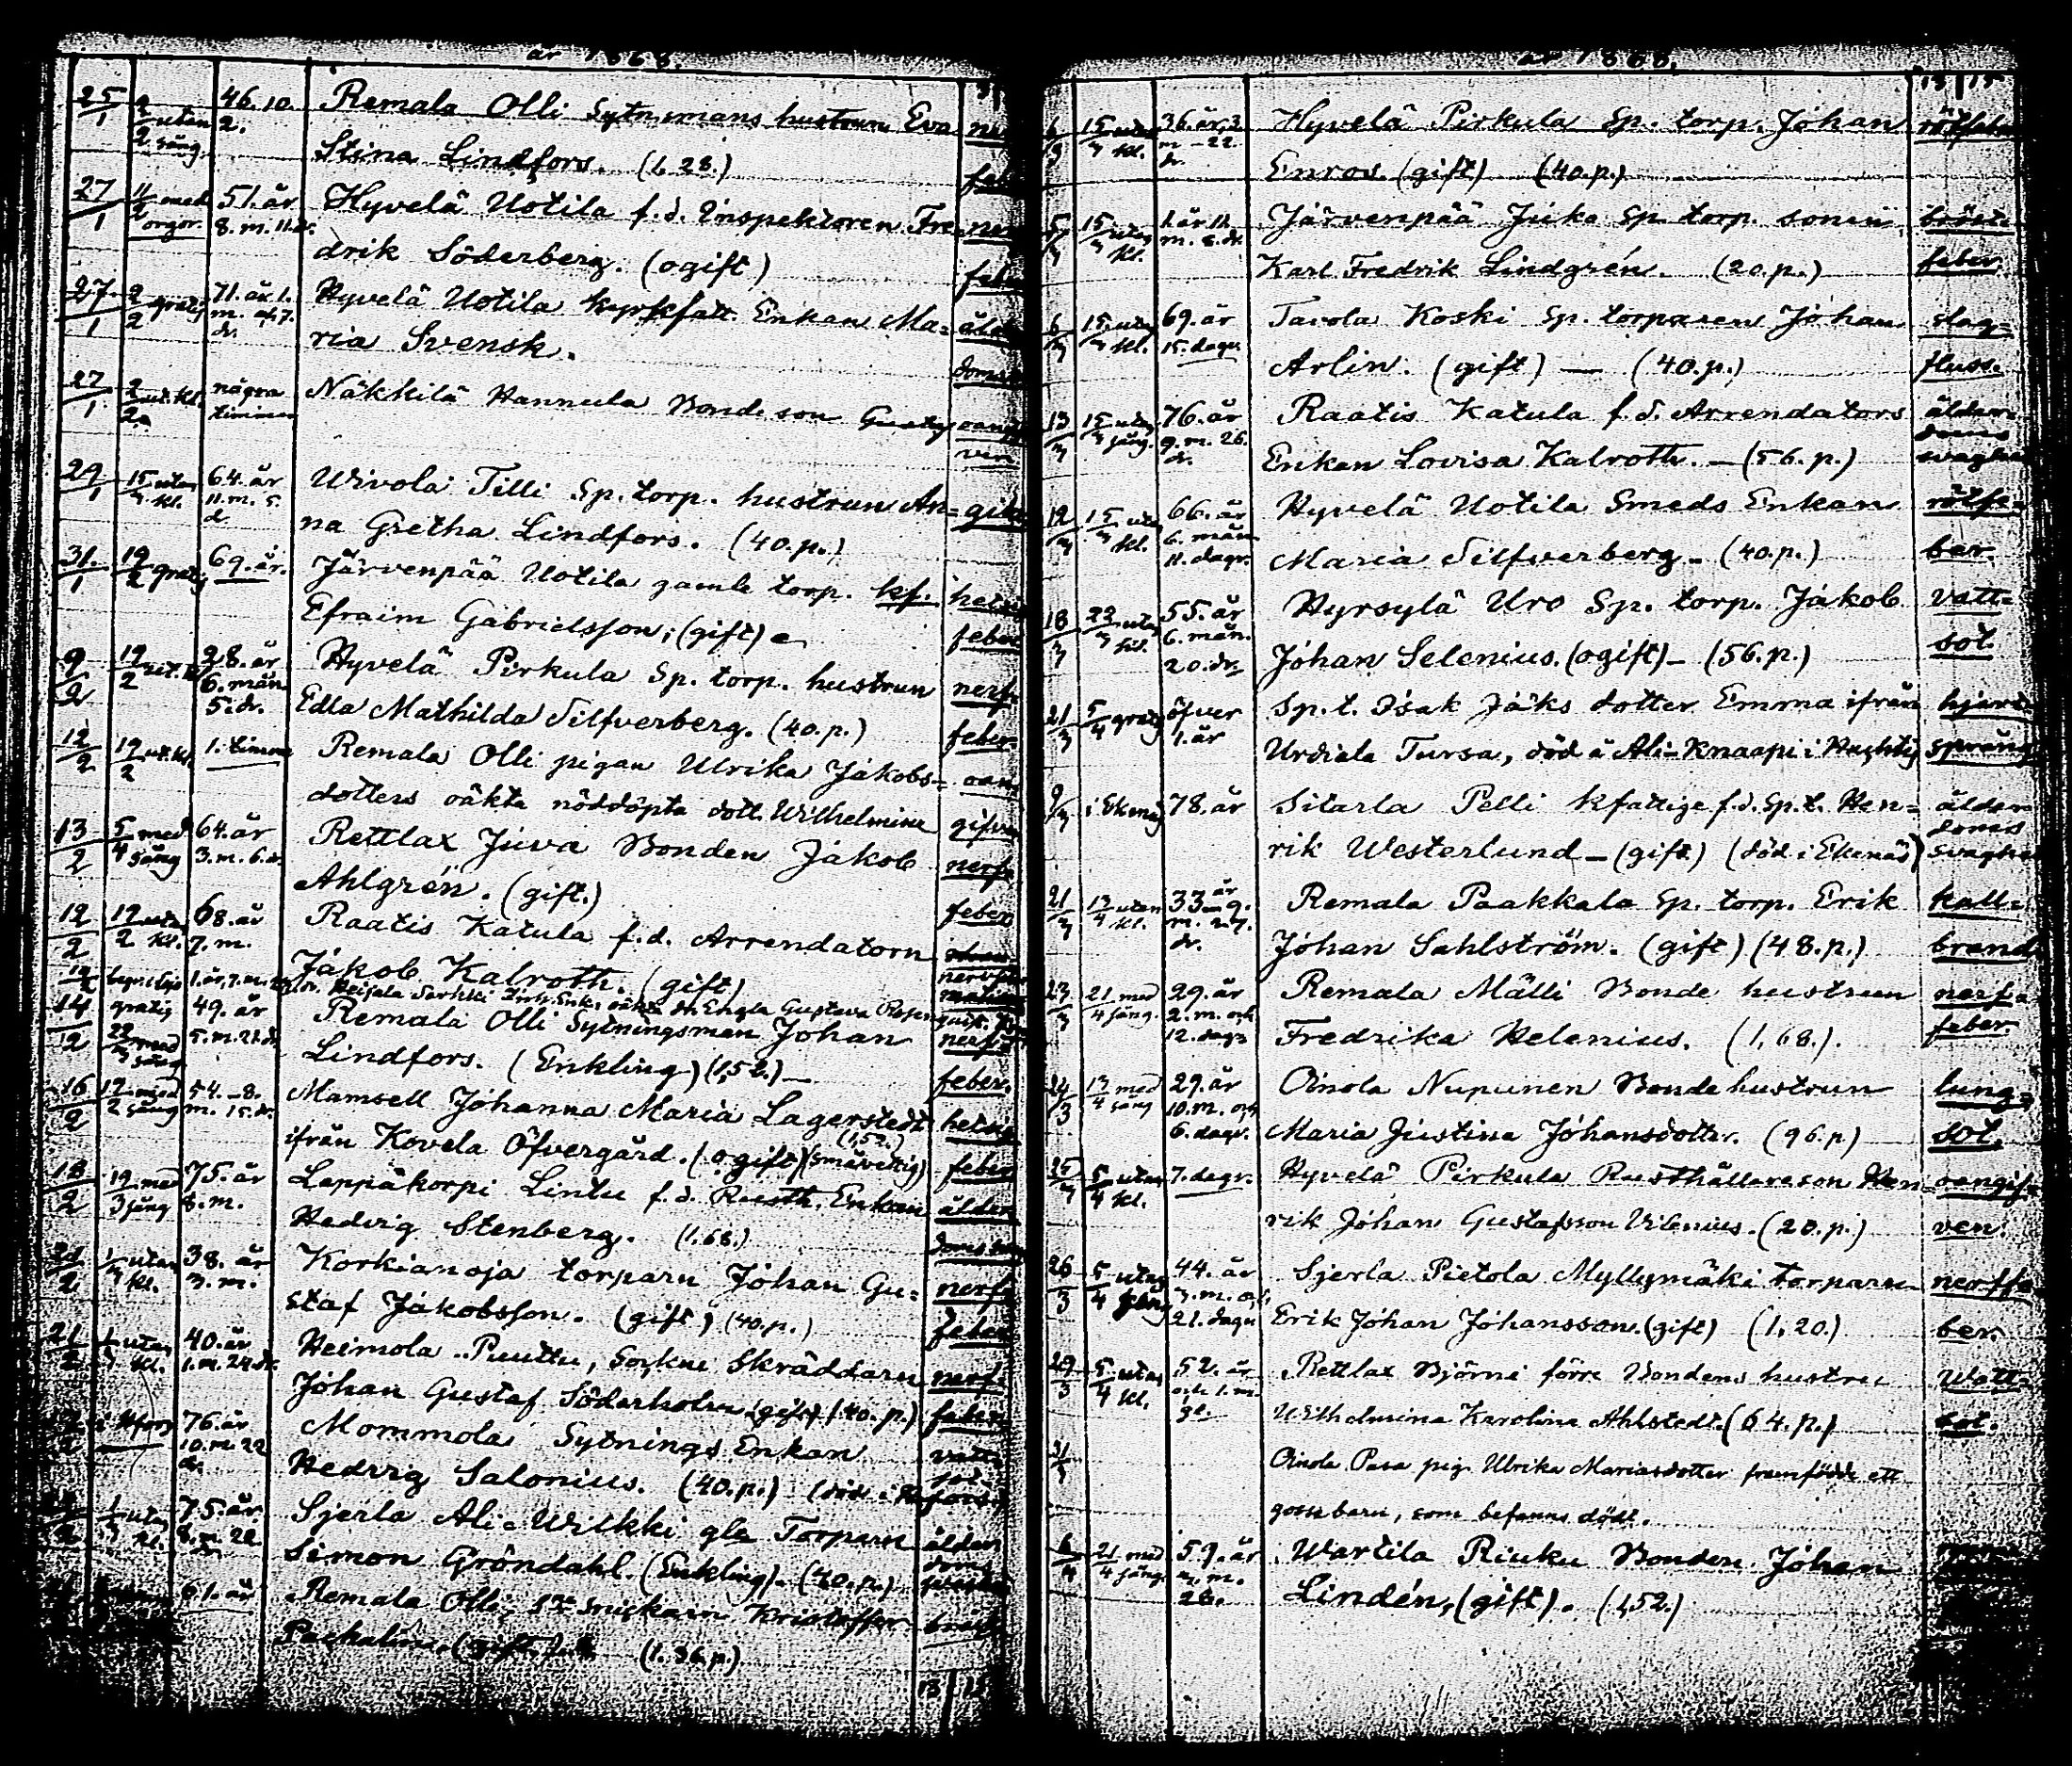 år 1868.
25/1 2/2 utan sång 46. 10. 2. Remala Olli Sytn.mans hustrun Eva
Stina Lindfors. (1,28.)
27/1 11/2 med orgor. 51. år 8. m. 11. dr. Hyvelä Uotila f.d. Inspektoren Fre-
drik Söderberg. (ogift)
27/1 2/2 gratis 71. år 1. m. 7. dr. Hyvelä Uotila kyrkfatt. Enkan Ma= ålder
ria Svensk. doms
27/1 2/2 ut. kl. några timmar Näkkilä Hannula Bonde son oangif
ven
29/1 15/3 utan kl. 64. år 11. m. 5. d. Wivola Tilli Sp. torp. hustrun An= gikt
na Gretha Lindfors. (40. p.)
31/1 19/2 gratis 69. år. Järvenpää Uotila gamle torp. kf.
Efraim Gabrielsson; (gift) feber
9/2 19/2 ut. kl. 28. år 6. mån. 5. dr. Hyvelä Pirkula Sp. torp. hustrun nerf-
Edla Mathilda Silfverberg. (40. p.) feber
12/2 19/2 ut. kl. 1. timme Remala Olli pigan Ulrika Jakobs= oan-
dotters oäkta nöddöpta dott. Wilhelmina gifven
13/2 5/4 med sång 64. år 3. m. 6. dr. Rettlax Juva Bonden Jakob nerf-
Ahlgrén. (gift.) feber
12/2 19/2 utan kl. 68. år 7. m. Raatis Katula f.d. Arrendatorn
Jakob Kalroth. (gift)
oäkta dr Engla Gustava
14/2 gratis 22/3 med sång 49. år 5. m. 21. dr. Remala Olli Sytningsman Johan nerf-
Lindfors. (Enkling) (1,52.) feber.
16/2 17/2 med sång 54. - 8. m. 15. dr. Mamsell Johanna Maria Lagerstedt hetsig
ifrån Kovela Öfvergård. (ogift) (småvettig) (1,52.) feber
18/2 19/3 med sång 75. år 8. m. Leppäkorpi Lintu f.d. Rusth. Enkan ålder
Hedvig Stenberg. (1,68.)
21/2 1/3 utan kl. 38. år 3. m. Korkianoja torparn Johan Gu= nerf-
staf Jakobsson. (gift) (40. p.) feber
21/2 1/3 utan kl. 40. år 1. m. 24. dr. Heimola Puuttu, Sockne Skräddarn nerf-
Johan Gustaf Söderholm (gift) (40. p.) feber
76. år 10. m. 22 dr. Mommola Sytnings Enkan vatt-
Hedvig Salonius. (40. p.) (död i H:fors) sot
1/3 utan kl. 75. år. 8. m. 22 dr. Sjerla Ali-Wilkki gle Torparn ålder
Simon Gröndahl. (Enkling). (40. p.) doms
61. år Remala Olli Kristoffer
(gift) (1. 36. p.)
13 15
år 1868.
13 15
6/3 15/3 utan kl. 36. år, 3. m - 22. dr. Hyvelä Pirkula Sp. torp. Johan rötfeber
Enros. (gift) (40. p.)
5/3 15/3 utan kl. 1. år 11. m. 8. dr. Järvenpää Juka Sp. torp. sonen bröst-
Karl Fredrik Lindgrén. (20. p.) feber.
6/3 15/3 utan kl. 69. år 15. dagr. Tavola Koski Sp. torparen Johan slag=
Arlin. (gift) — (40. p.) fluss.
13/3 15/3 utan sång. 76. år 9. m. 26. dr. Raatis Katula f.d. Arrendators ålder-
doms
Enkan Lovisa Kalroth. — (56. p.) svaghet
12/3 15/3 utan kl. 66. år 6. mån 11. dagr. Hyvelä Uotila Smeds Enkan rötfe=
Maria Silfverberg. (40. p.) ber.
18/3 22/3 utan kl. 55. år 6. mån. 20. dr. Hyrsylä Uro Sp. torp. Jakob vatt=
Johan Selenius. (ogift) — (56. p.) sot.
21/3 5/4 gratis öfver 1. år Sp. t. Isak Jäks dotter Emma ifrån
Urdiala Tursa, död å Ali-Knaapi i språng
9/3 i Ekenäs 78. år Sitarla Pelli kfattige f.d. Sp. t. Hen= ålder
doms
rik Westerlund — (gift) (död i Ekenäs) svaghet
21/3 13/4 utan kl. 33 år 9. m. 27. dr. Remala Paakkala Sp. torp. Erik kall=
Johan Sahlström. (gift) (48. p.) brand
23/3 21/4 med sång. 29. år 2. m. och 12. dagr Remala Mälli Bonde hustrun nerf-
Fredrika Helenius. (1,68.). feber.
24/3 13/4 med sång 29. år 10. m. och 6. dagr. Oinola Nupunen Bonde hustrun lung-
Maria Justina Johansdotter. (96. p) sot.
25/3 5/4 utan kl. 7. dagr. Hyvelä Pirkula Rusthållareson Hen- oangif-
rik Johan Gustafsson Vilenius. (20. p.) ven.
26/3 5/4 utan 44. år 3. m. och 21. dagr Sjerla Pietola Myllymäki torparn nerffe
Erik Johan Johansson. (gift) (1,20.) ber.
29/3 5/4 utan kl. 52. år och 1. m. Rettlax Björni förre Bondens hustru Watt-
Wilhelmina Karolina Ahlstedt. (64. p.) sot.
31/3 Oinola Pasa pig. Ulrika Mariasdotter framfödde ett
gossebarn, som befanns dödt.
6/4 21/4 med sång. 59. år m. 28. Wartila Riuku Bonden Johan
Lindén, (gift). (1,52.)